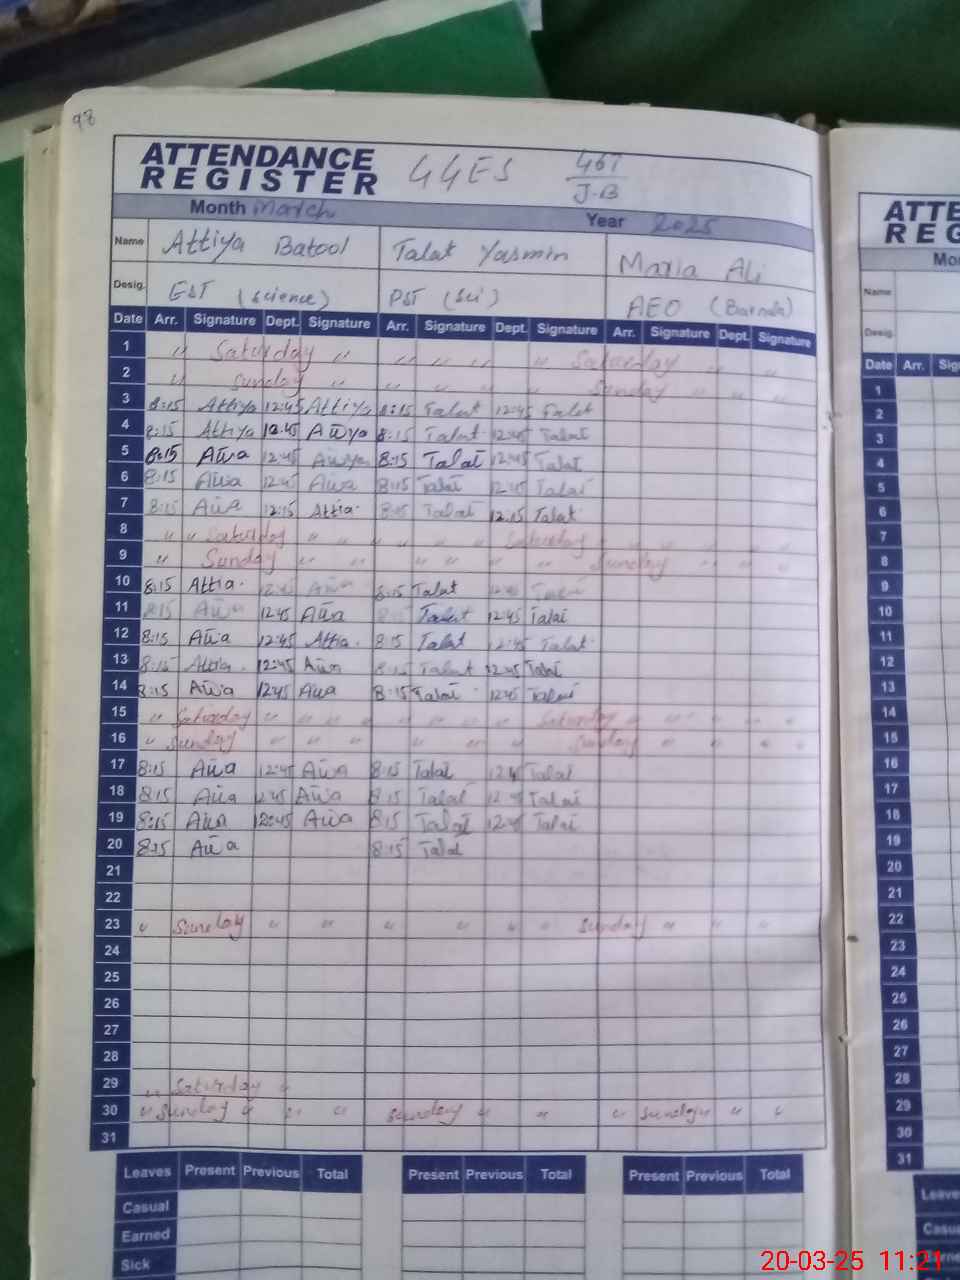 98
ATTENDANCE
REGISTER
GGES 467
J-B
Month March Year 2025
Name Attiya Batool Talat Yasmin Maria Ali
Desig. EST (science) PST (Sci) AEO (Barnala)
Date Arr. Signature Dept. Signature Arr. Signature Dept. Signature Arr. Signature Dept. Signature
1 " Saturday " " " " " " Saturday " "
2 " Sunday " " " " " " Sunday " "
3 8:15 Attiya 12:45 Attiya 8:15 Talat 12:45 Talat
4 8:15 Attiya 12:45 Attiya 8:15 Talat 12:45 Talat
5 8:15 Attia 12:45 Attiya 8:15 Talat 12:45 Talat
6 8:15 Attia 12:45 Attia 8:15 Talat 12:45 Talat
7 8:15 Attia 12:15 Attia 8:15 Talat 12:15 Talat
8 " " Saturday " " " " " " Saturday " " " "
9 " Sunday " " " " " " Sunday " " "
10 8:15 Attia 12:45 Attia 8:15 Talat 12:45
11 8:15 Attia 12:45 Attia Talat 12:45 Talat
12 8:15 Attia 12:45 Attia 8:15 Talat 12:45 Talat
13 8:15 Attia 12:45 Attia 8:15 Talat 12:45 Talat
14 8:15 Attia 12:45 Attia 8:15 Talat 12:45 Talat
15 " Saturday " " " " " " " Saturday " " " "
16 " Sunday " " " " " " Sunday " " " "
17 8:15 Attia 12:45 Attia 8:15 Talat 12:45 Talat
18 8:15 Attia 12:45 Attia 8:15 Talat 12:45 Talat
19 8:15 Attia 12:45 Attia 8:15 Talat 12:45 Talat
20 8:15 Attia 8:15 Talat
21
22
23 " Sunday " " " " " " Sunday " " "
24
25
26
27
28
29 " Saturday "
30 " Sunday " " " Sunday " " " Sunday " "
31
Leaves Present Previous Total Present Previous Total Present Previous Total
Casual
Earned
Sick
ATTE
REG
Mo
Name
Desig.
Date Arr. Sig
1
2
3
4
5
6
7
8
9
10
11
12
13
14
15
16
17
18
19
20
21
22
23
24
25
26
27
28
29
30
31
Leave
Casu
20-03-25 11:21